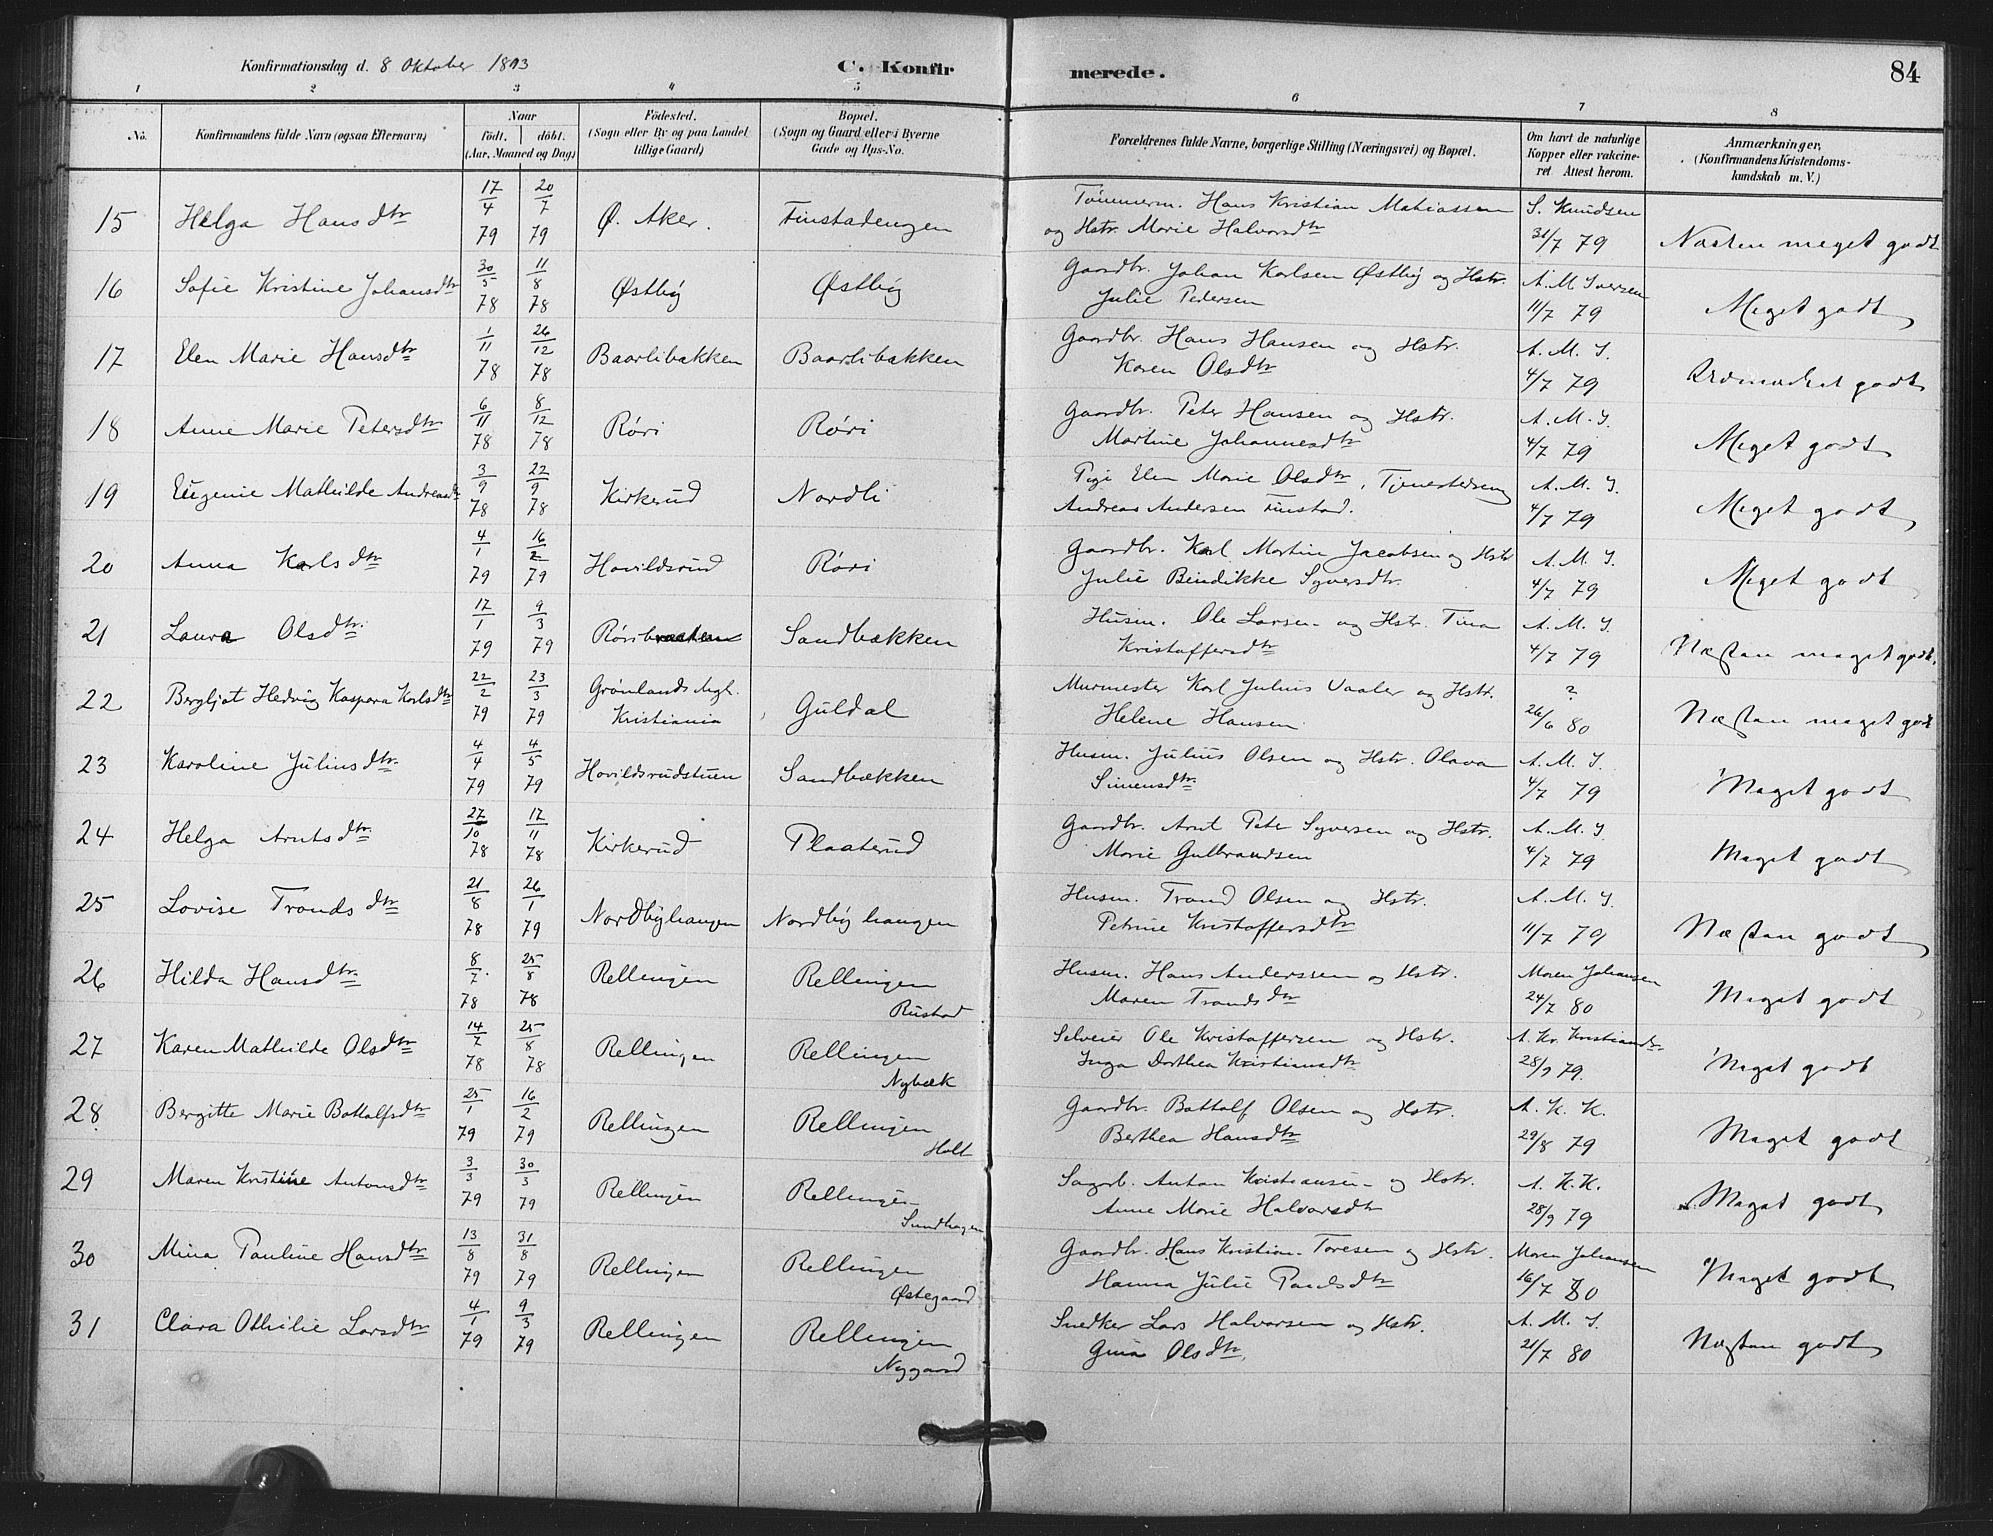 Konfirmationsdag d. 8 Oktober 1893 C. Konfirmerede. 84
1 2 3 4 5 6 7 8
No. Konfirmandens fulde Navn (ogsaa Efternavn) Naar født. døbt. (Aar, Maaned og Dag) Fødested. (Sogn eller By og paa Landet tillige Gaard) Bopæl. (Sogn og Gaard eller i Byerne Gade og Hus-No. Forældrenes fulde Navne, borgerlige Stilling (Næringsvei) og Bopæl. Om havt de naturlige Kopper eller vakcineret Attest herom. Anmærkninger, (Konfirmandens Kristendomskundskab m. V.)
15 Helga Hansdtr 17/4 79 20/7 79 Ø. Aker. Finstadengen Tømmerm. Hans Kristian Mathiassen S. Knudsen
og Hstr. Marie Halvorsdtr 31/7 79 Næsten meget godt
16 Sofie Kristine Johansdtr 30/5 78 11/8 78 Østby Østby Gaardbr. Johan Karlsen Østby og Hstr. A. M. Sversen
Julie Pedersen 11/7 79 Meget godt
17 Elen Marie Hansdtr 1/11 78 26/12 78 Baarlibakken Baarlibakken Gaardbr. Hans Hansen og Hstr. A. M. S.
Karen Olsdtr 4/7 79 godt
18 Anne Marie Petersdtr 6/11 78 8/12 78 Røri Røri Gaardbr. Peter Hansen og Hstr. A. M. S.
Martine Johannesdtr 4/7 79 Meget godt
19 Eugenie Mathilde Andreasdtr 3/9 78 22/9 78 Kirkerud Nordli Pige Elen Marie Olsdtr, A. M. S.
Andreas Andersen Finstad. 4/7 79 Meget godt
20 Anna Karlsdtr 4/1 79 16/2 79 Hovildsrud Røri Gaardbr. Karl Martin Jacobsen og Hstr A. M. S.
Julie Bendikke Syversdtr. 4/7 79 Meget godt
21 Laura Olsdtr. 17/1 79 9/3 79 Røribraaten Sandbækken Husm. Ole Larsen og Hstr. Tina A. M. S.
Kristoffersdtr 4/7 79 Næsten meget godt.
22 Bergljot Hedvig Kaspara Karlsdtr 22/2 79 23/3 79 Grønlands Mgh. Kristiania Guldal Murmester Karl Julius Vaaler og Hstr. ?
Helene Hansen. 26/6 80 Næsten meget godt
23 Karoline Juliusdtr. 4/4 79 4/5 79 Hovildsrudstuen Sandbækken Husm. Julius Olsen og Hstr. Olava A. M. S.
Simensdtr 4/7 79 Meget godt
24 Helga Arntsdtr 27/10 78 17/11 78 Kirkerud Plaaterud Gaardbr. Arnt Peter Syversen og Hstr. A. M. S
Marie Gulbrandsen 4/7 79 Meget godt
25 Lovise Trondsdtr 21/8 78 26/1 79 Nordbyhaugen Nordbyhaugen Husm. Trond Olsen og Hstr. A. M. S.
Petrine Kristoffersdtr 11/7 79 Næsten godt
26 Hilda Hansdtr 8/7 78 25/8 78 Rellingen Rellingen Rustad Husm. Hans Anderssen og Hstr. Maren Johansen
Maren Trondsdtr 24/7 80 Meget godt
27 Karen Mathilde Olsdtr 14/7 78 25/8 78 Rellingen Rellingen Nybæk Selveier Ole Kristoffersen og Hstr. A. Kr. Kristiands.
Inga Dorthea Kristiansdtr 28/9 79. Meget godt
28 Bergitte Marie Bottolfsdtr 25/1 79 16/2 79 Rellingen Rellingen Holt Gaardbr. Bottolf Olsen og Hstr. A. K. K.
Berthea Hansdtr 29/8 79 Meget godt
29 Maren Kristine Antonsdtr 3/3 79 30/3 79 Rellingen Rellingen Sundhagen Sagarb. Anton Kristiansen og Hstr. A. K. K.
Anne Marie Halvorsdtr 28/9 79 Meget godt
30 Mina Pauline Hansdtr 13/8 79 31/8 79 Rellingen Rellingen Østegaard Gaardbr. Hans Kristian Toresen og Hstr. Maren Johansen
Hanna Julie 16/7 80 Meget godt
31 Clara Othilie Larsdtr 4/1 79 9/3 79 Rellingen Rellingen Nygaard Snedker Lars Halvorsen og Hstr. A. M. S.
Gina Olsdtr. 21/7 80 Næsten godt